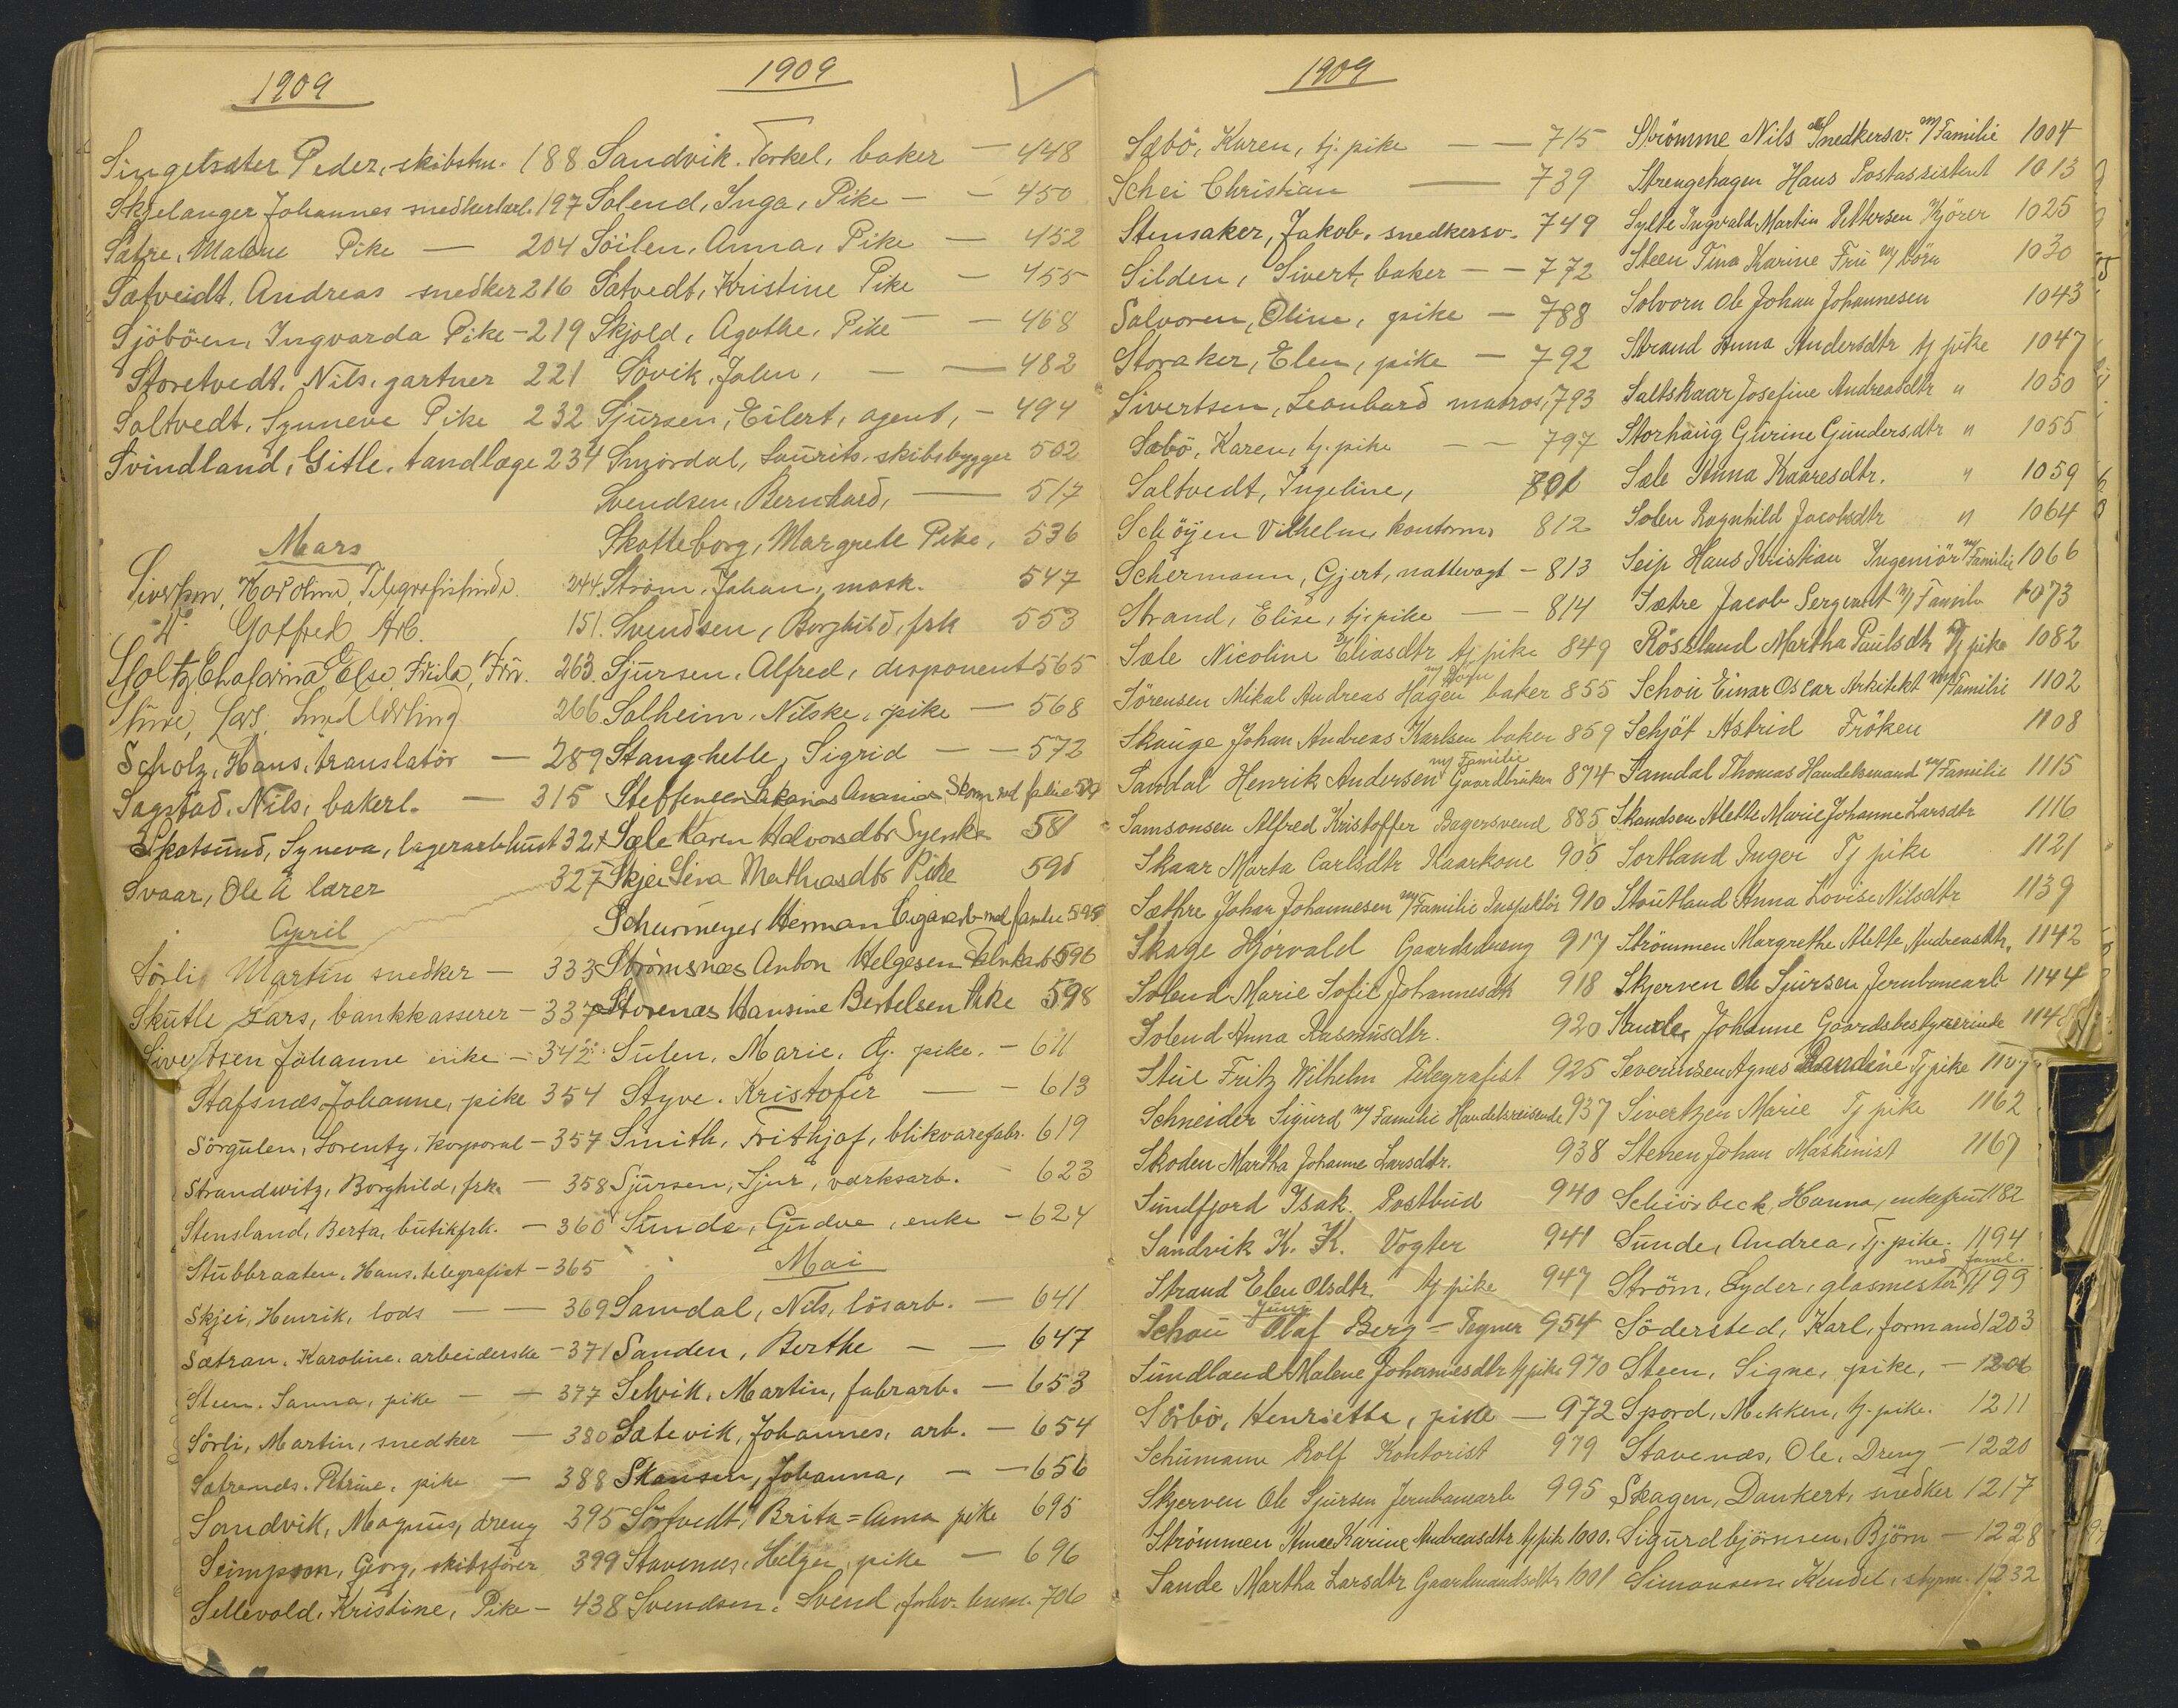 1909
Singelsæter Peder, skibstm. 188
Skjelanger Johannes snedkerlærl. 197
Sætre, Malene Pike — 204
Sætveidt, Andreas snedker 216
Sjöböen, Ingvarda Pike - 219
Storetvedt, Nils, gartner 221
Saltvedt, Synneve Pike 232
Svindland, Gitle, tandlæge 234
Mars
244
Gotfred Arb. 151.
Else Frida, Fru. 263.
266
Scholz, Hans, translatör — 289
Sagstad, Nils, bakerl. — 315
Skotsund, Syneva, lagerarb 324
Svaar, Ole A lærer 327
April
Sörli Martin snedker — 333
Skutle Lars, bankkasserer - 337
Sivertsen Johanne enke - 342
Stafsnæs Johanne, pike 354
Sörgulen, Lorentz, korporal - 357
Strandwitz, Borghild, frk. — 358
Stensland, Berta, butikfrk. — 360
Stubbraaten, Hans, telegrafist - 365
Skjei, Henrik, lods — — 369
Sætran, Karoline, arbeiderske - 371
Steen, Sanna, pike — — 377
Sörli, Martin, snedker — 380
Sætrenæs, Petrine, pike — 388
Sandvik, Magnus, dreng 395
Seimpson, Georg, skibsförer 399
Sellevold, Kristine, Pike - 438
1909
Sandvik, Torkel, baker — 448
Solend, Inga, Pike — — 450
Söilen, Anna, Pike — 452
Sætvedt, Kristine Pike — 455
Skjold, Agathe, Pike — — 468
Sövik, Jolen, — — 482
Sjursen, Eilert, agent, — 494
Smørdal, Laurits, skibsbygger 502
Svendsen, Bernhard, — 517
Skotteborg, Margrete Pike, 536
Strøm, Johan, mask. 547
Svendsen, Borghild, frk 553
Sjursen, Alfred, disponent 565
Solheim, Nilske, pike — 568
Stanghelle, Sigrid — — 572
Steffensen Ananias
Sæle Karen Halvorsdtr Syerske 581
Skjei Sina Mathiasdtr Pike 590
Schurmeyer Herman Cigararb med familie 595
Strømsnæs Anton Helgesen 596
Storenæs Hansine Bertelsen Pike 598
Sulen, Marie, tj. pike. — 611
Styve, Kristofer — — 613
Smith, Frithjof, blikvarefabr. 619
Sjursen, Sjur, værksarb. — 623
Sunde, Gudve, enke — 624
Mai
Samdal, Nils, lösarb. — 641
Sanden, Berthe — — 647
Selvik, Martin, fabrarb. — 653
Sætevik, Johannes, arb. — 654
Skansen, Johanna, — — 656
Sörtvedt, Brita=Anna pike 695
Stavenes, Helga, pike — 696
Svendsen, Svend, 706
1909
Sæbö, Karen, tj. pike — — 715
Schei Christian — 739
Stensaker, Jakob, snedkersv. 749
Silden, Sivert, baker — — 772
Solvoren, Oline, pike — 788
Storaker, Elen, pike — 792
Sivertsen, Leonhard matros, 793
Sæbö, Karen, tj. pike — — 797
Saltvedt, Ingeline, 801
Schöyen Vilhelm, kontorm. 812
Schermann, Gjert, nattevagt — 813
Strand, Elise, tj. pike — — 814
Sæle Nicoline Eliasdtr tj pike 849
Sörensen Mikal Andreas Hagen baker 855
Skauge Johan Andreas Karlsen baker 859
Samdal Henrik Andersen m/ Familie Gaardbruker 874
Samsonsen Alfred Kristoffer Bagersvend 885
Skaar Marta Carlsdtr Kaarkone 905
Sæthre Johan Johannesen m/ Familie Inspektör 910
Skage Hjörvald Gaardsdreng 917
Solend Marie Sofie Johannesdtr 918
Solend Anna Rasmusdtr. 920
Stue Fritz Wilhelm Telegrafist 925
Schneider Sigurd m/ Familie Handelsreisende 937
Skoden Martha Johanne Larsdtr. 938
Sundfjord Isak Postbud 940
Sandvik K. K. Vogter 941
Strand Elen Olsdtr. tj pike 947
Schou Olaf Berg = Tegner 954
Sundland Malene Johannesdtr tj pike 970
Sörbö, Henriette, pike — 972
Schumann Rolf Kontorist 979
Skjerven Ole Sjursen Jernbanearb 995
Strömmen Anne Karine Andreasdtr tj pik 1000.
Sande Martha Larsdtr Gaardmandsdtr 1001
Strömme Nils Snedkersv. m/ Familie 1004
Strengehagen Hans Postassistent 1013
Sylte Ingvald Martin Pettersen Kjörer 1025
Steen Tina Karine Fru m/ börn 1030
Solvorn Ole Johan Johannesen 1043
Strand Anna Andersdtr tj pike 1047
Saltskaar Josefine Andreasdtr " 1050
Storhaug Gurine Gundersdtr " 1055
Sæle Anna Kaaresdtr. " 1059
Solen Ragnhild Jacobsdtr " 1064
Seip Hans Kristian Ingeniör m/ Familie 1066
Sætre Jacob Sergeant m/ Familie 1073
Rössland Martha Paulsdtr Tj pike 1082
Schou Einar Oscar Arkitekt m/ Familie 1102
Schjöt Astrid Fröken 1108
Samdal Thomas Handelsmand m/ Familie 1115
Skandsen Alette Marie Johanne Larsdtr 1116
Sortland Inger Tj pike 1121
Stoutland Anna Lovise Nilsdtr 1139
Strömmen Margrethe Alette Andreasdtr. 1142
Skjerven Ole Sjursen Jernbanearb 1144
Sande, Johanne Gaardsbestyrerinde 1148
Severinsen Agnes Randine Tj pike 1157
Sivertzen Marie Tj pike 1162
Stenen Johan Maskinist 1167
Schiörbeck, Hanna, enkefru 1182
Sunde, Andrea, Tj. pike. 1194
Ström, Lyder, glasmester med faml. 1199
Södersted, Karl, formand 1203
Steen, Signe, pike, — 1206
Spord, Mikken, tj. pike. 1211
Stavenæs, Ole, Dreng — 1220
Skagen, Dankert, snedker 1217
Sigurdbjörnsen, Björn — 1228
Simonsen, styrm. 1232